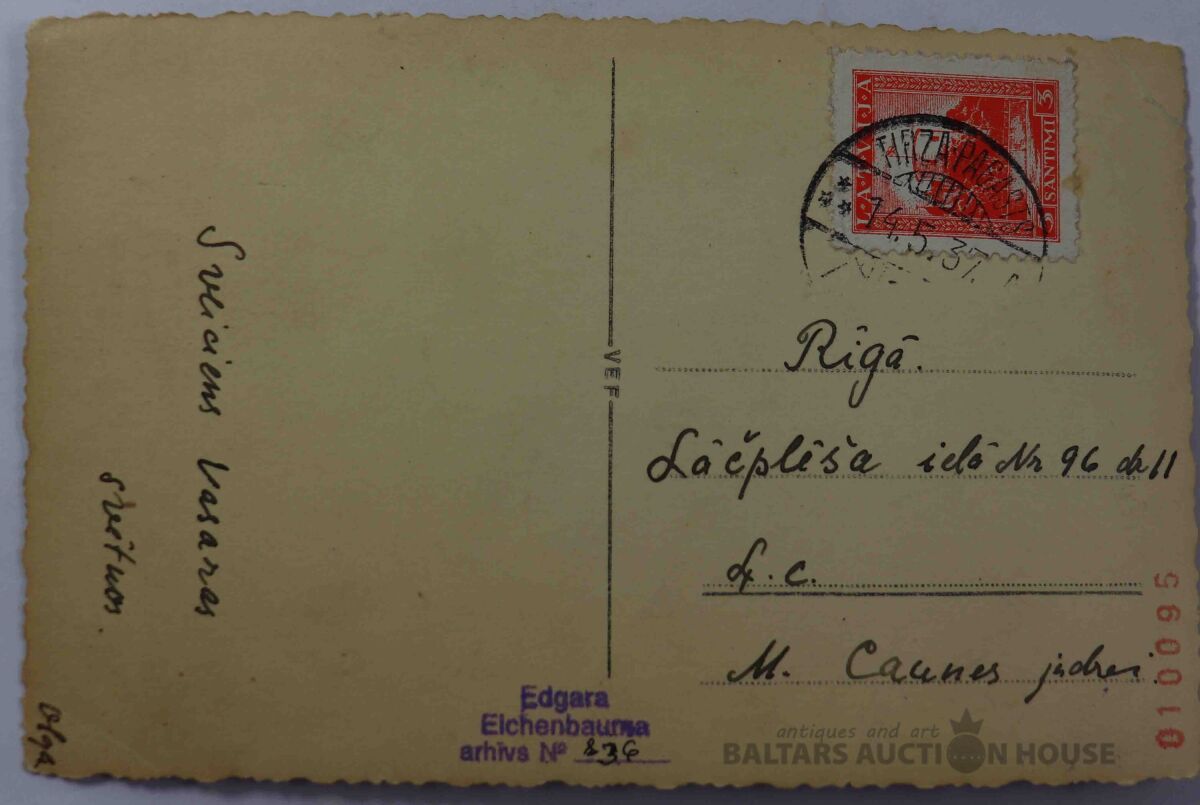 Sveiciens Vasaras
svētuos
Olga
VEF
LATVIJA
3 SANTIMS 3
TIRZA-PAGASTS
14.5.37.
Rīgā.
Lāčplēša ielā Nr 96 dz 11
L. c.
M. Caunes jndzei.
Edgara
Eichenbauma
arhīvs Nº 836
010095
antiques and art
BALTARS AUCTION HOUSE